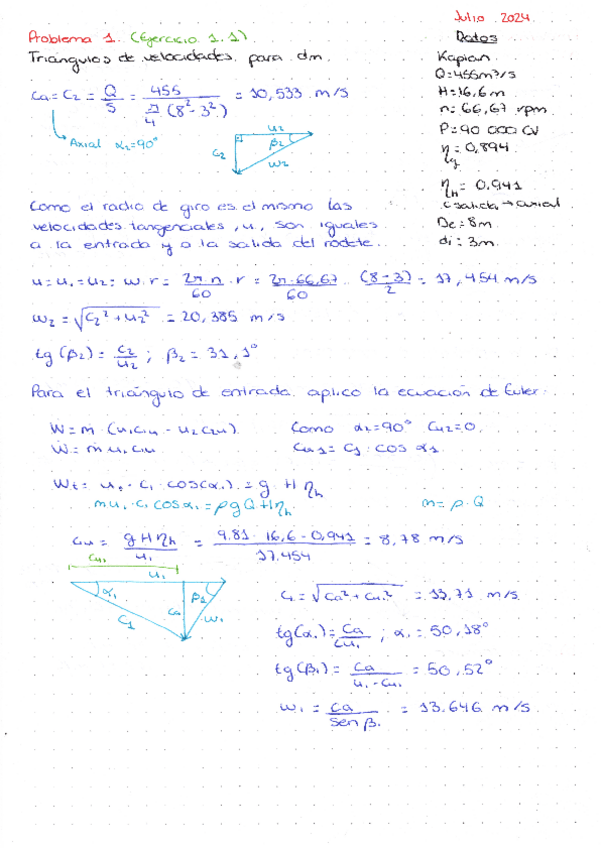 Julio 2024
Problema 1. (Ejercicio 1.1)
Triángulos de velocidades para dm.
Datos
Kaplan
Q=455m³/s
H=16,6m
n=66,67 rpm
P=90 000 CV
η = 0,894
ηh = 0,941
c salida → axial
De=8m
di=3m
Ca = C2 = Q/S = 455 / (π/4 (8²-3²)) = 10,533 m/s
Axial α2=90°
u2
C2
β2
w2
Como el radio de giro es el mismo las
velocidades tangenciales, u, son iguales
a la entrada y a la salida del rodete.
u = u1 = u2 = w·r = 2π n/60 · r = 2π·66,67/60 (8-3)/2 = 17,454 m/s
w2 = √(C2² + u2²) = 20,385 m/s
tg(β2) = C2/u2 ; β2 = 31,1°
Para el triángulo de entrada aplico la ecuación de Euler:
W = m (u1 C1u - u2 C2u) Como α2=90° Cu2=0
W = m u1 C1u Cu1 = C1·cos α1
Wt = u1·C1·cos(α1) = g H ηh
m u1·C1 cos α1 = ρ g Q H ηh m = ρ·Q
Cu1 = g H ηh / u1 = 9.81·16,6·0,941 / 17.454 = 8,78 m/s
Cu1
u1
α1
Ca
β1
C1
w1
C1 = √(Ca² + Cu1²) = 13,71 m/s
tg(α1) = Ca/Cu1 ; α1 = 50,18°
tg(β1) = Ca / (u1 - Cu1) = 50,52°
w1 = Ca / sen β1 = 13.646 m/s